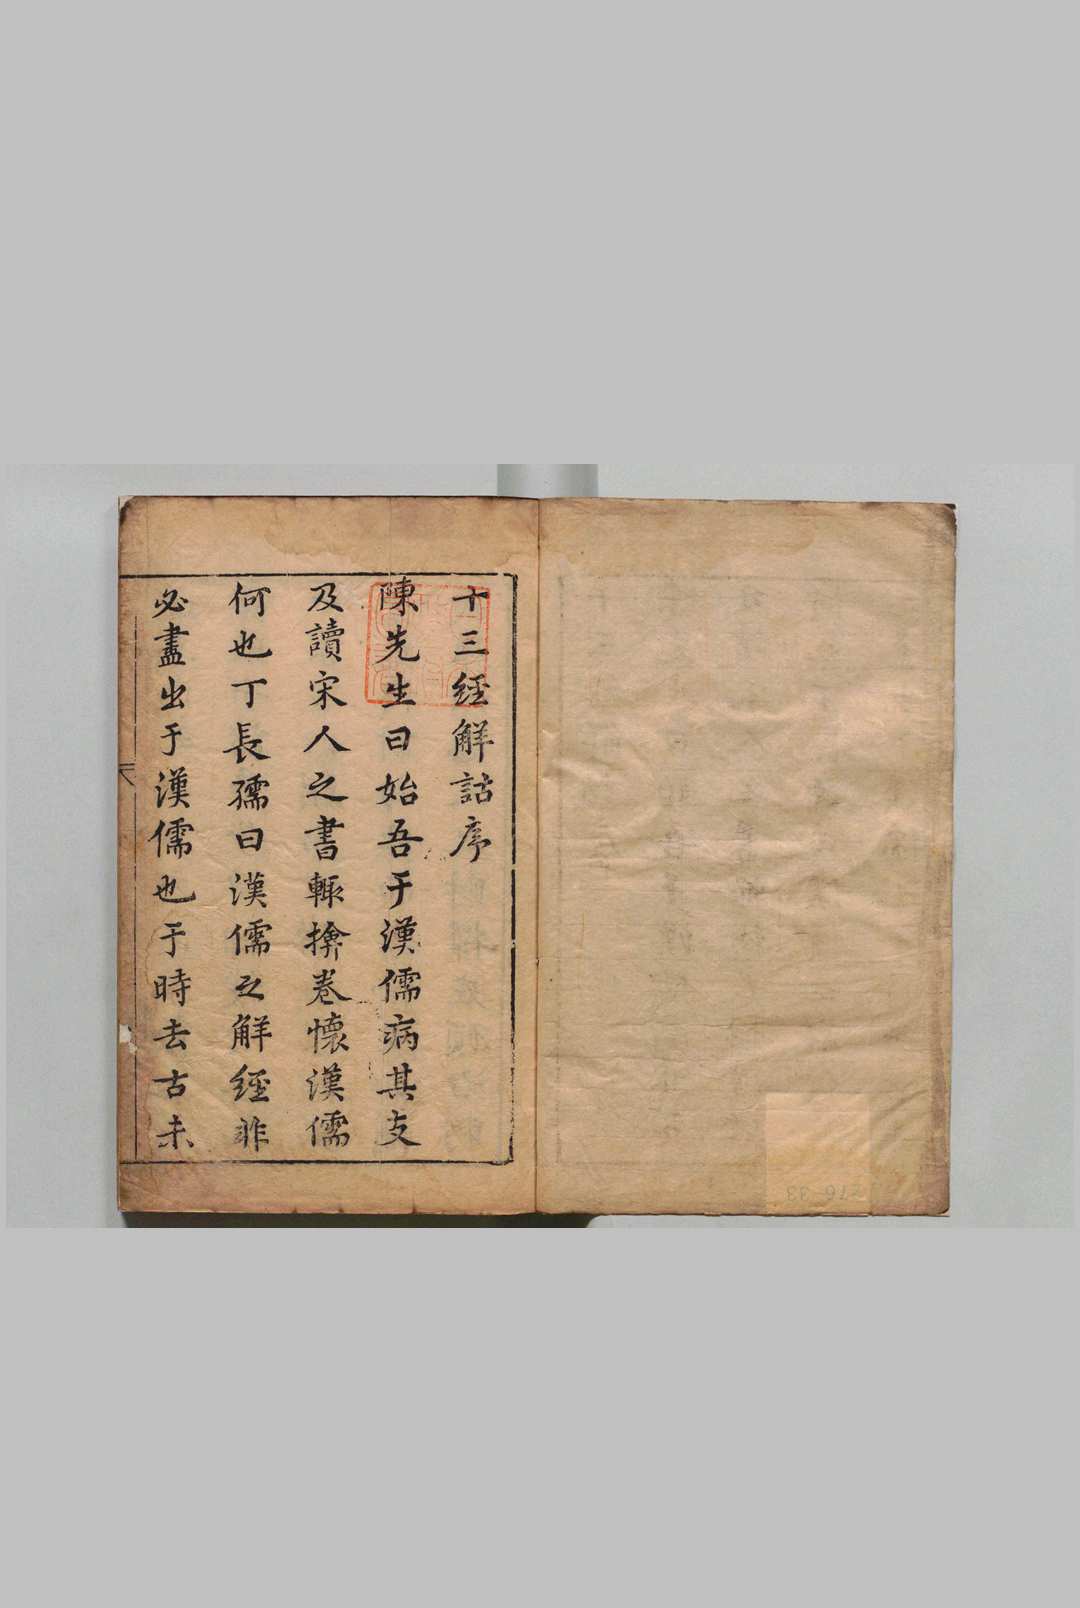 十三経解詁序
陳先生曰始吾于漢儒病其支
及讀宋人之書輒擒卷懷漢儒
何也丁長孺曰漢儒之解經非
必盡出于漢儒也于時去古未
276-33